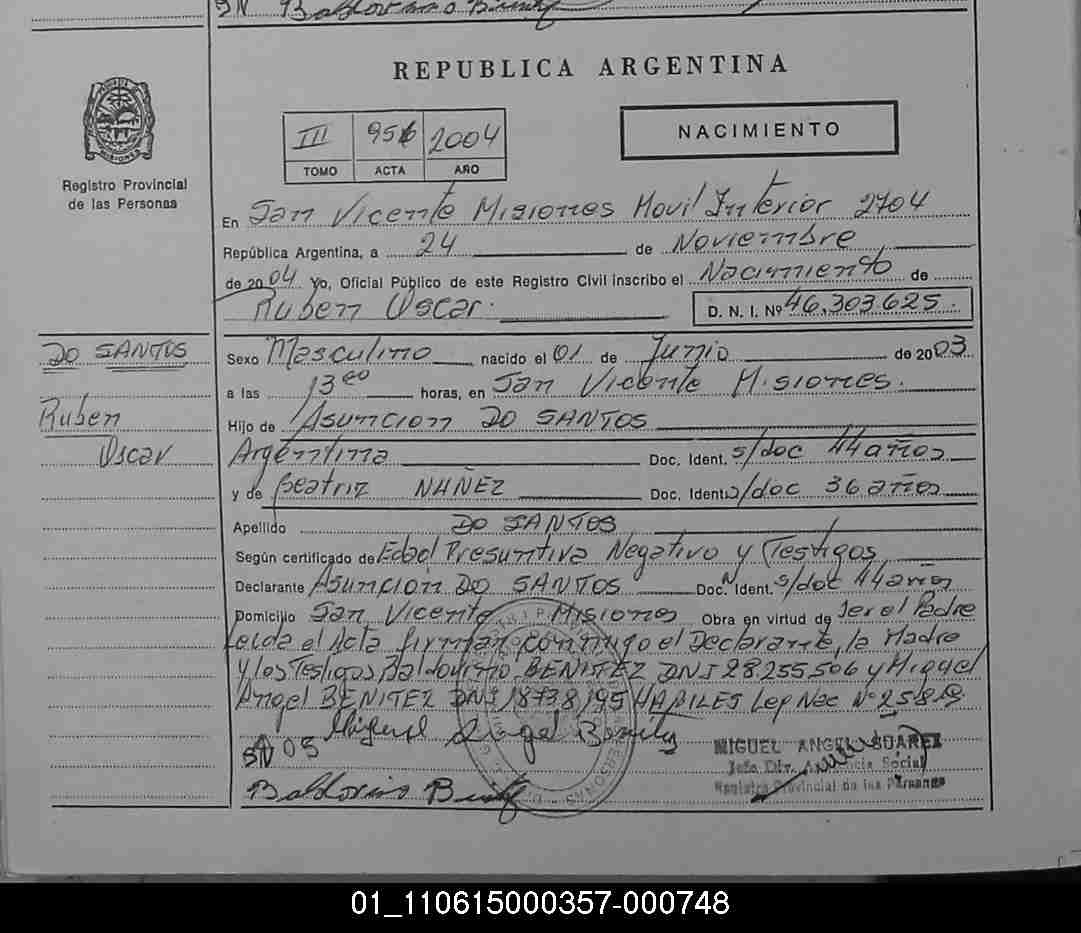 SN Baldovino Benitez
REPUBLICA ARGENTINA
MISIONES
Registro Provincial
de las Personas
III 956 2004
TOMO ACTA AÑO
NACIMIENTO
En San Vicente Misiones Movil Interior 2704
República Argentina, a 24 de Noviembre
de 2004 Yo, Oficial Público de este Registro Civil inscribo el Nacimiento de
Ruben Oscar. D. N. I. Nº 46.303.625.
DO SANTOS
Ruben
Oscar
Sexo Masculino nacido el 01 de Junio de 2003
a las 13 00 horas, en San Vicente Misiones.
Hijo de Asuncion DO SANTOS
Argentina Doc. Ident. s/doc 44 años
y de Beatriz NUÑEZ Doc. Ident. s/doc 36 años
Apellido DO SANTOS
Según certificado de Edad Presuntiva Negativo y Testigos
Declarante Asuncion DO SANTOS Doc. Ident. s/doc 44 años
Domicilio San Vicente Misiones Obra en virtud de Ser el Padre
Leida el Acta firman conmigo el Declarante, la Madre
y los Testigos Baldovino BENITEZ DNI 28.255.506 y Miguel
Angel BENITEZ DNI 18738195 HABILES Ley Nac Nº 25.819
SN DS Miguel Angel Benitez
MIGUEL ANGEL SUAREZ
Jefe Div. Asistencia Social
Registro Provincial de las Personas
Baldovino Benitez
01_110615000357-000748